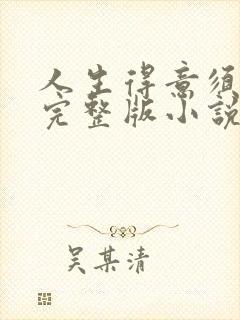 人生得意须
完整版小說
吴某清